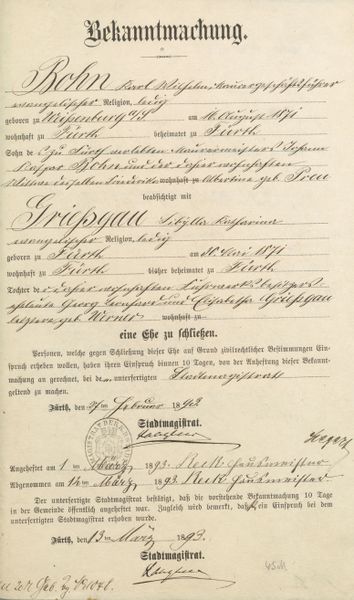 Bekanntmachung.
Bohn Karl Wilhelm, Maurergeschäftsführer
evangelischer Religion, ledig
geboren zu Weißenburg a/S am 16. August 1871
wohnhaft zu Fürth beheimatet zu Fürth
Sohn des zu Fürth verlebten Maurermeisters Johann
Kaspar Bohn und der daher wohnhaften
Witwe desselben Friederike wohnhaft zu Albertine geb. Preu
beabsichtigt mit
Grießgau Sibylla Katharina
evangelischer Religion, ledig
geboren zu Fürth am 30. Mai 1871
wohnhaft zu Fürth bisher beheimatet zu Fürth
Tochter der daher wohnhaften Fuhrwerksbesitzers
eheleute Georg Leonhard und Elisabetha Grießgau
letztere geb. Werner wohnhaft zu
eine Ehe zu schließen.
Personen, welche gegen Schließung dieser Ehe auf Grund zivilrechtlicher Bestimmungen Ein-
spruch erheben wollen, haben ihren Einspruch binnen 10 Tagen, von der Anheftung dieser Bekannt-
machung an gerechnet, bei dem unterfertigten Stadtmagistrat
geltend zu machen.
Fürth, den 27. Februar 1893
Stadtmagistrat.
Angeheftet am 1 ten März 1893. Hausmeister
Abgenommen am 12 ten März 1893. Hausmeister
Der unterfertigte Stadtmagistrat bestätigt, daß die vorstehende Bekanntmachung 10 Tage
in der Gemeinde öffentlich angeheftet war. Zugleich wird bemerkt, daß ein Einspruch bei dem
unterfertigten Stadtmagistrat erhoben wurde.
Fürth, den 13. März 1893.
Stadtmagistrat.